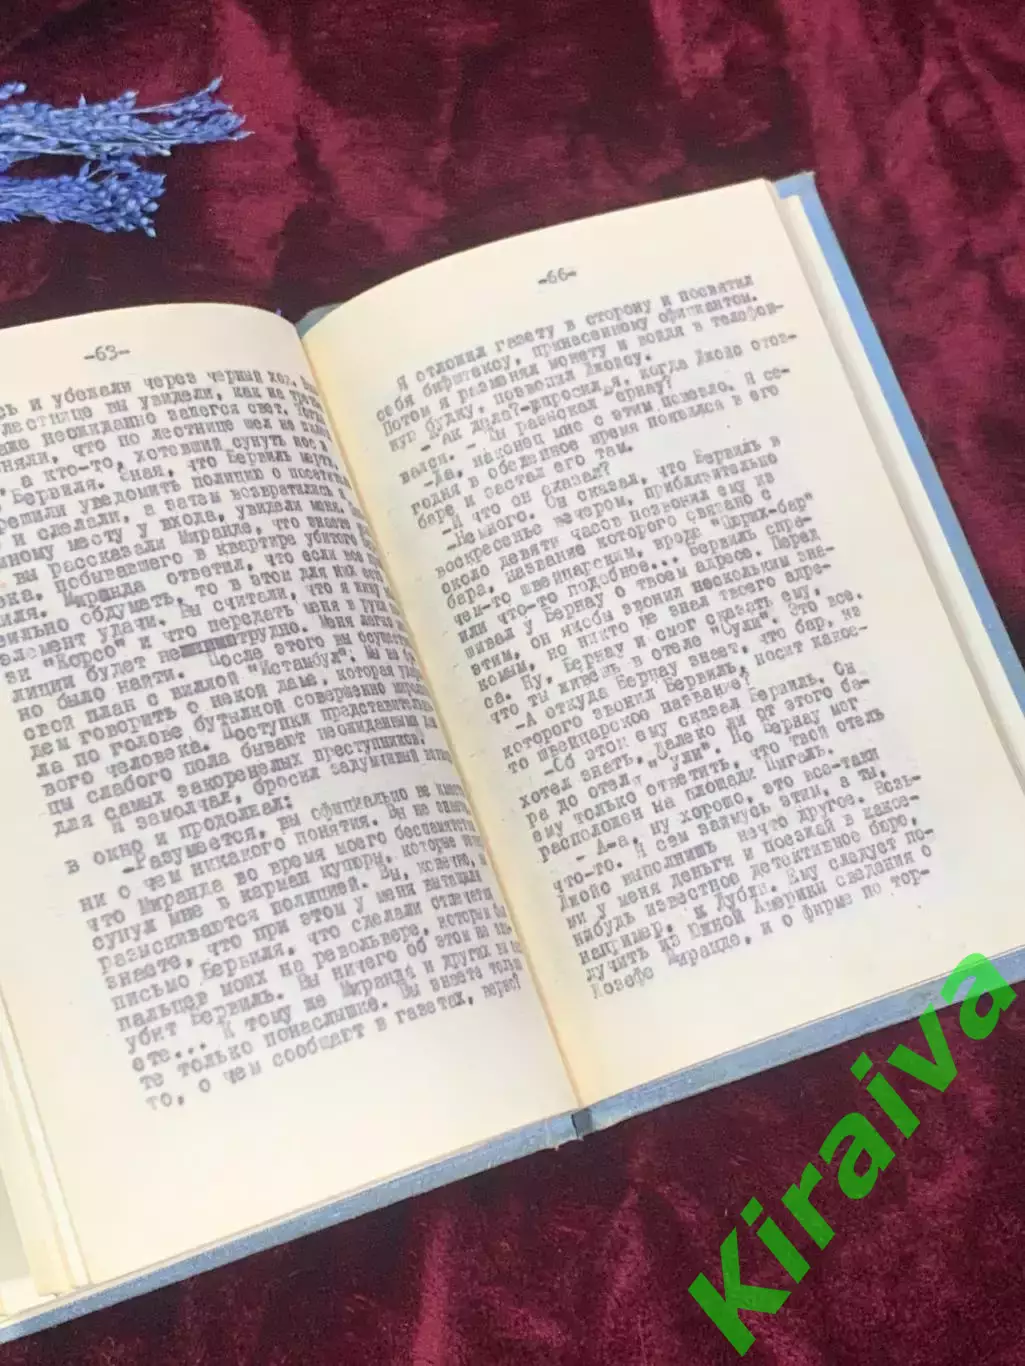 -63-
сь и убежали через черный ход.
лестнице вы увидели, как на
же неожиданно зажегся свет.
няли, что по лестнице шел не
, а кто-то, хотевший сунуть нос
Бервиля. Зная, что Бервиль мертв,
решили уведомить полицию о
и сделали, а затем возвратились к
ному месту у входа, увидели меня.
вы рассказали Миранде, что знаете
ка, побывавшего в квартире убитого
иля. Миранда ответил, что если все
вильно обдумать, то в этом для них есть
элемент удачи. Вы считали, что я живу
зи "Корсо" и что передать меня в руки
лиции будет нетрудно. Меня легко
но было найти. После этого вы
свой план с виллой "Истамбул". Вы не
дем говорить о некой даме, которая
ла по голове бутылкой совершенно
вого человека. Поступки
цы слабого пола бывают неожиданными
для самых закоренелых преступников.
Я замолчал, бросил задумчивый взгляд
в окно и продолжал:
-Разумеется, вы официально не имеете
ни о чем никакого понятия. Вы не знаете,
что Миранда во время моего беспамятства
сунул мне в карман купюры, которые
разыскиваются полицией. Вы, конечно, не
знаете, что при этом у меня вытащили
письмо Бервиля, что сделали отпечатки
пальцев моих на револьвере, которым был
убит Бервиль. Вы ничего об этом не
ете... К тому же Миранде и других вы
те только понаслышке. Вы знаете только
то, о чем сообщают в газетах, верно?
-66-
Я отложил газету в сторону и посвятил
себя бифштексу, принесенному официантом.
Потом я разменял монету и вошел в телефон-
ную будку, позвонил Джойсу.
-Как дела?-спросил я, когда Джойс отоз-
вался. - Ты разыскал Бернау?
-Да, наконец мне с этим повезло. Я се-
годня в обеденное время появился в его
баре и застал его там.
-И что он сказал?
-Немного. Он сказал, что Бервиль в
воскресенье вечером, приблизительно
около девяти часов позвонил ему из
бара, название которого связано с
чем-то швейцарским, вроде "Цюрих-бар"
или что-то подобное... Бервиль спра-
шивал у Бернау о твоем адресе. Перед
этим, он якобы звонил нескольким зна-
комым, но никто не знал твоего адре-
са. Ну, Бернау и смог сказать ему,
что ты живешь в отеле "Сули". Это все.
-А откуда Бернау знает, что бар, из
которого звонил Бервиль, носит какое-
то швейцарское название?
-Об этом ему сказал Бервиль. Он
хотел знать, далеко ли от этого ба-
ра до отеля "Сули". Но Бернау мог
ему только ответить, что твой отель
расположен на площади Пигаль.
- А-а, ну хорошо, это все-таки
что-то. Я сам займусь этим, а ты,
Джойс выполнишь нечто другое. Возь-
ми у меня деньги и поезжай в какое-
нибудь известное детективное бюро,
например, к Дубли. Ему следует по-
лучить из Южной Америки сведения о
Жозефе Миранде, и о фирме по тор-
Kiraiva